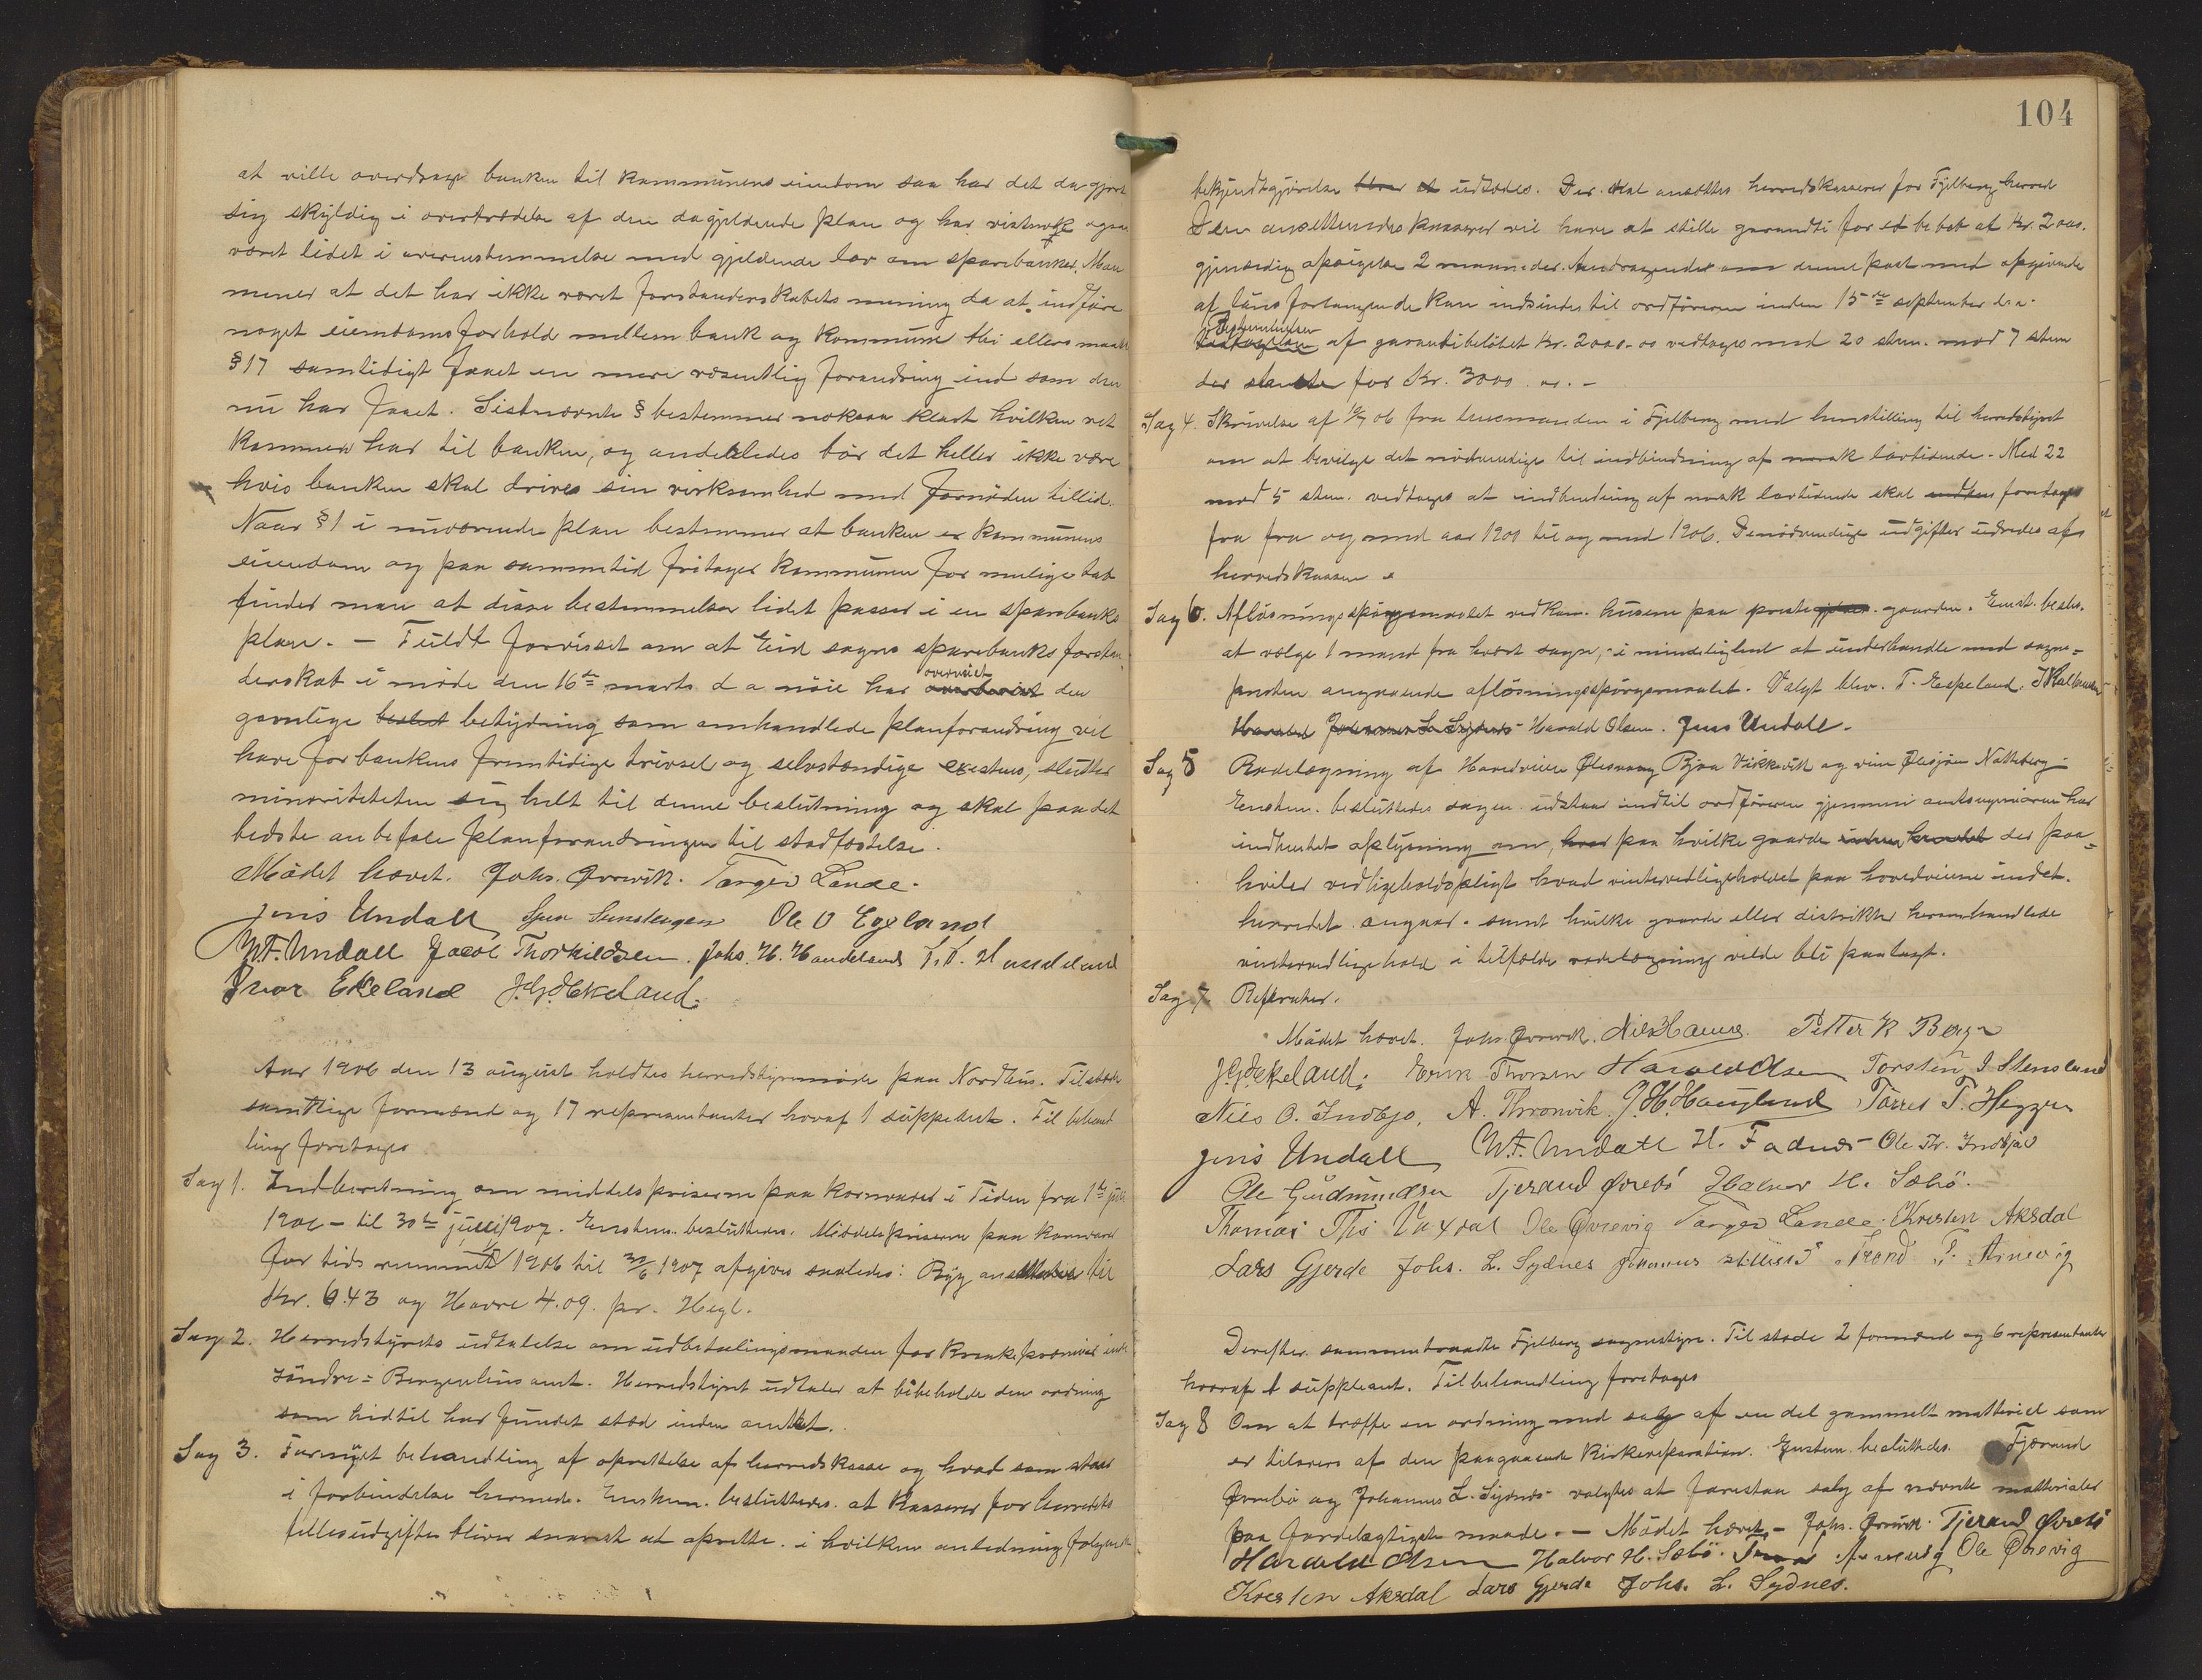 at ville overdrage banken til kommunens eiendom saa har det da gjort
sig skyldig i overtrædelse af den dagjeldende plan og har vistnok ogsaa
været lidet i overensstemmelse med gjeldende lov om sparebanker. Man
mener at det har ikke været forstanderskabets mening da at indføre
noget eiendomsforhold mellem bank og kommune thi ellers maatte
§ 17 samtidigt faaet en mere væsentlig forandring end som den
nu har faaet. Sistnævnte § bestemmer noksaa klart hvilken ret
kommunen har til banken, og anderledes bør det heller ikke være
hvis banken skal drives sin virksomhed med fornøden tillid.
Naar § 1 i nuværende plan bestemmer at banken er kommunens
eiendom og paa sammetid fritager kommunen for mulige tab
finder man at disse bestemmelser lidet passer i en sparebanks
plan. — Fuldt forvisset om at Eid sogns sparebanks forstan
derskab i møde den 16de marts d a nøie har overveiet den
gavnlige beslut betydning som omhandlede planforandring vil
have for bankens fremtidige trivsel og selvstændige existens, slutter
minoriteten sig helt til denne beslutning og skal paa det
bedste anbefale planforandringen til stadfæstelse.
Mødet hævet. Johs. Øvrevik. Torger Lande.
Jens Undall Ole O Egeland
M.F. Undall Jacob Thorkildsen. Johs. H. Handeland
Ivar Ekeland J. G. Ekeland.
Aar 1906 den 13 august holdtes herredsstyremøde paa Nordhus. Tilstede
samtlige formænd og 17 representanter hvoraf 1 suppleant. Til behand
ling foretages
Sag 1. Indberetning om middelspriserne paa kornvarer i Tiden fra 1ste juli
1906 — til 30te juni 1907. Enstem. besluttedes. Middelspriserne paa kornvarer
for tidsrummet 1/7 1906 til 30/6 1907 afgives saaledes: Byg ansættes til
Kr. 6.43 og Havre 4.09. pr. Hegl.
Sag 2. Herredsstyrets udtalelse om udbetalingsmaaden for Kronkepræmier
søndre = Bergenhus amt. Herredsstyret udtaler at bibeholde den ordning
som hidtil har fundet sted inden amtet.
Sag 3. Fornyet behandling af oprettelse af herredskasse og hvad som staar
i forbindelse hermed. Enstem. besluttedes at Kasserer for herredets
fellesudgifter bliver snarest at oprette. i hvilken anledning følgende
104
bekjendtgjørelse blev at udstædes. Der skal ansættes herredskasserer for Fjelberg herred
Den ansettendes kasserer vil have at stille garanti for et beløb af Kr. 2000.
gjensidig opsigelse 2 maaneder. Andragender om denne post med opgivende
af løns forlangende kan indsendes til ordføreren inden 15de september d.a.
Bestemmelsen af garantibeløbet Kr. 2000.00 vedtoges med 20 stem. mod 7 stem
der stemte for Kr. 3000.00. —
Sag 4. Skrivelse af 06 fra lensmanden i Fjelberg med henstilling til herredsstyret
om at bevilge det nødvendige til indbindning af norsk lovtidende. Med 22
mod 5 stem. vedtoges at indbindning af norsk lovtidende skal foretages
fra fra og med aar 1900 til og med 1906. De nødvendige udgifter udredes af
herredskassen
Sag 6. Afløsningsspørgsmaalet vedkom. husene paa preste gaarden. Enst. beslu.
at vælge 1 mand fra hvert sogn, i mindelighed at underhandle med sogne=
presten angaaende afløsningsspørgsmaalet. Valgt blev T. Espeland,
Harald Johannes L. Sydnes Harald Olsen. Jens Undall.
Sag 5 Rodelægning af Hovedveien Ølensvaag Bjoa Vikkevik og veien Ølensjøen Natteberg
Enstem. besluttedes sagen udstaar indtil ordføreren gjennem amtsingeniøren har
indhentet oplysning om, hvad paa hvilke gaarde der paa=
hviler vedligeholdspligt hvad vintervedligeholdet paa hovedveiene indet.
herredet angaar. samt hvilke gaarde eller distrikter heromhandlede
vintervedligehold i tilfælde rodelægning vilde bli paalagt.
Sag 7. Referater.
Mødet hævet. Johs. Øvrevik. Nils Hauge. Petter K Berge
J. G. Ekeland. Erik Thorsen Harald Olsen Torsten J Stensland
Nils O. Indbjo, A. Thronvik. J. H. Haugland Tørres T. Heggen
Jens Undall M.F. Undall H. Fadnes Ole Tr. Indbjo
Ole Gudmundsen Tjerand Øvrebø Halvor H. Sæbø.
Thomas Ths Vaxdal Ole Øvrevig Torger Lande. Kresten Aksdal
Lars Gjerde Johs. L. Sydnes Trond T. Arnevig
Derefter sammentraadte Fjelberg sognestyre. Til stede 2 formænd og 6 representanter
hvoraf 1 suppleant. Til behandling foretages
Sag 8 Om at træffe en ordning med salg af en del gammelt matteriel som
er tilovers af den paagaaende kirkereparation. Enstem. besluttedes. Tjærand
Øvrebø og Johannes L. Sydnes valgtes at forestaa salg af nævnte matterialer
paa fordelagtigste maade. — Mødet hævet — Johs. Øvrevik. Tjerand Øvrebø
Harald Olsen Halvor H. Sæbø. Trond Arnevig Ole Øvrevig
Kresten Aksdal Lars Gjerde Johs. L. Sydnes.